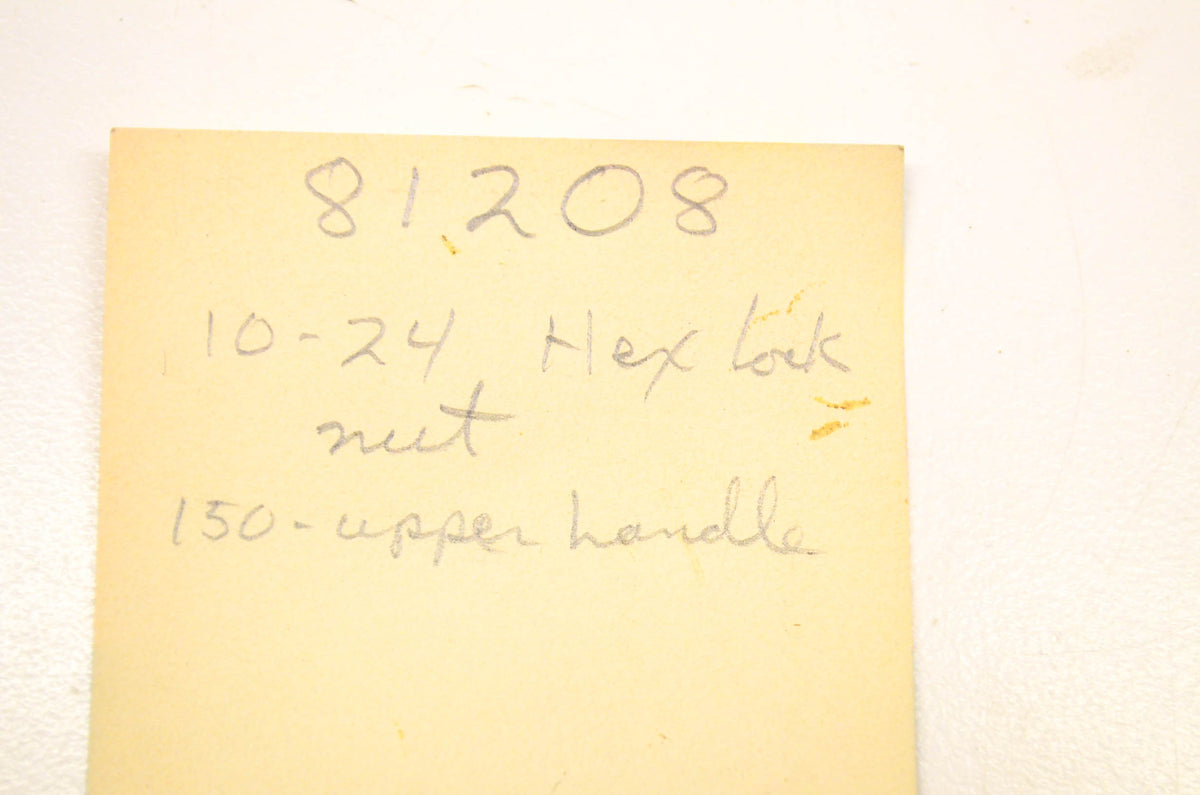 81208
10-24 Hex Lock
nut
150-upper handle